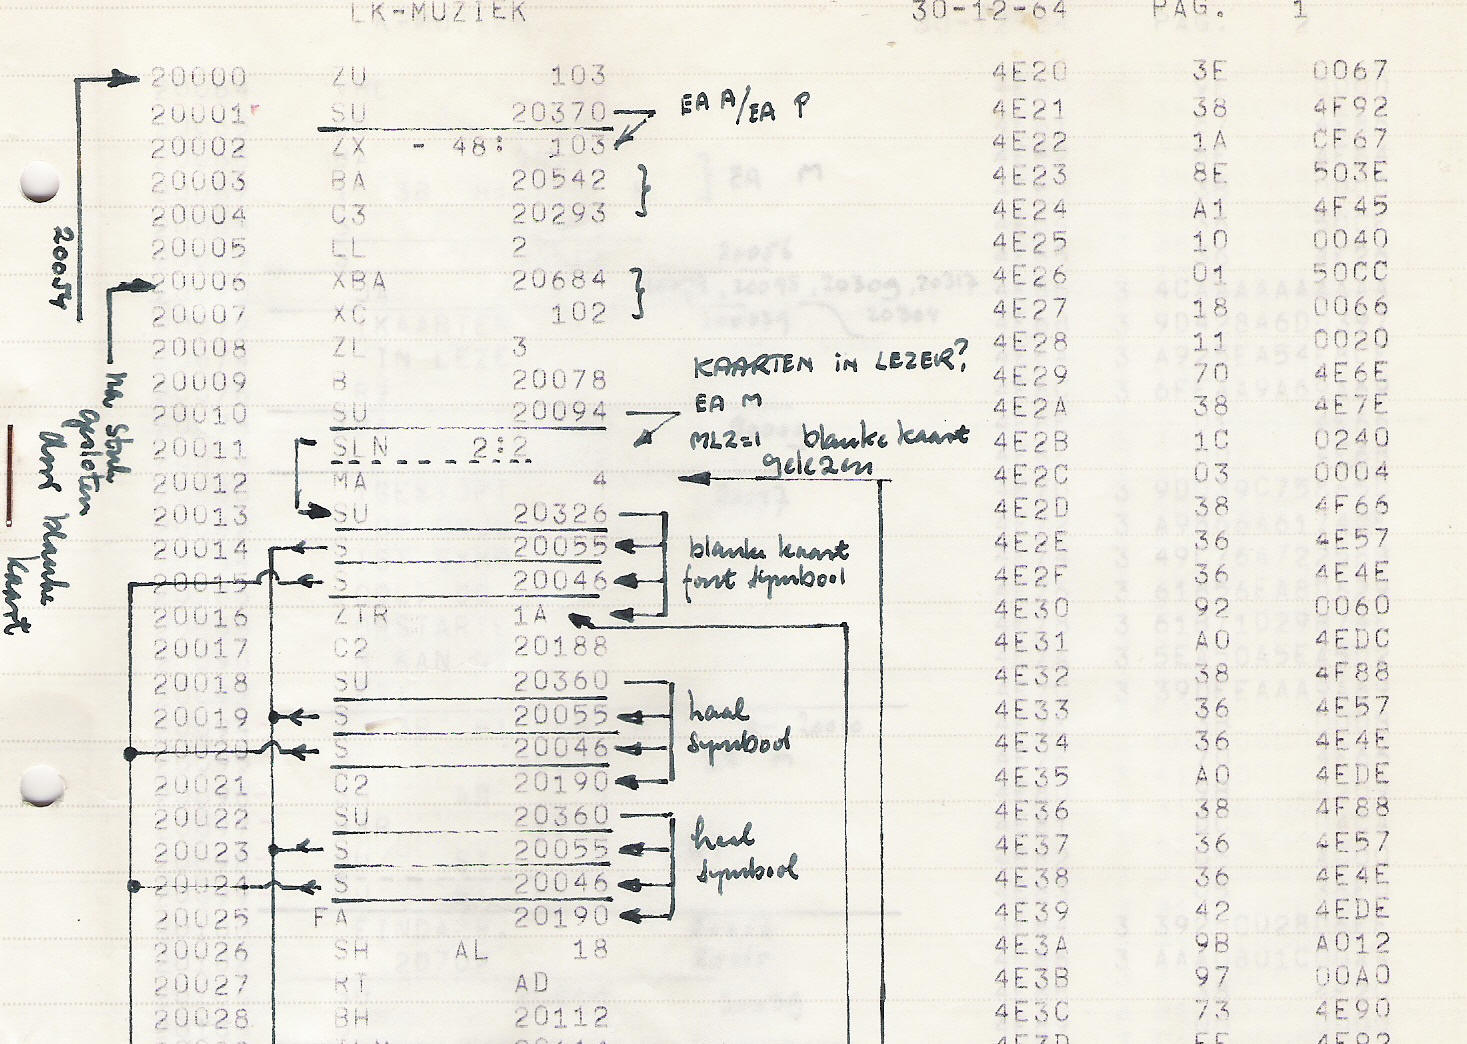 LK-MUZIEK 30-12-64 PAG. 1
20000 ZU 103 4E20 3E 0067
20001 SU 20370 EA A/EA P 4E21 38 4F92
20002 ZX - 48: 103 4E22 1A CF67
20003 BA 20542 4E23 8E 503E
20004 C3 20293 4E24 A1 4F45
20005 LL 2 4E25 10 0040
20006 XBA 20684 4E26 01 50CC
20007 XC 102 4E27 18 0066
20008 ZL 3 4E28 11 0020
KAARTEN IN LEZER?
20009 B 20078 4E29 70 4E6E
20010 SU 20094 EA M 4E2A 38 4E7E
20011 SLN 2:2 MLZ=1 blanke kaart 4E2B 1C 0240
gelezen
20012 MA 4 4E2C 03 0004
20013 SU 20326 4E2D 38 4F66
20014 S 20055 blanke kaart 4E2E 36 4E57
20015 S 20046 fout symbool 4E2F 36 4E4E
20016 ZTR 1A 4E30 92 0060
20017 C2 20188 4E31 A0 4EDC
20018 SU 20360 4E32 38 4F88
20019 S 20055 haal 4E33 36 4E57
20020 S 20046 symbool 4E34 36 4E4E
20021 C2 20190 4E35 A0 4EDE
20022 SU 20360 4E36 38 4F88
20023 S 20055 haal 4E37 36 4E57
20024 S 20046 symbool 4E38 36 4E4E
20025 FA 20190 4E39 42 4EDE
20026 SH AL 18 4E3A 9B A012
20027 RT AD 4E3B 97 00A0
20028 BH 20112 4E3C 73 4E90
4E3D 4E92
20054
gesloten
door blanke
kaart